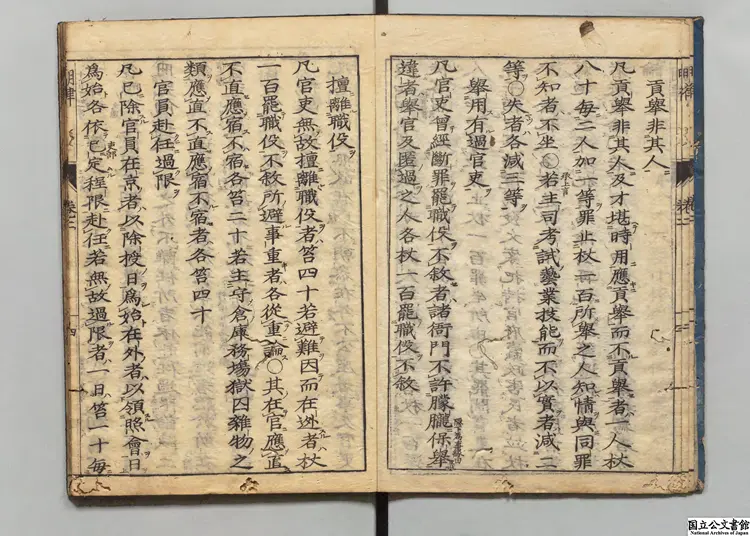 貢舉非其人
凡貢舉非其人及才堪時用應貢舉而不貢舉者一人杖
八十每二人加一等罪止杖一百所舉之人知情與同罪
不知者不坐○若主司考試藝業技能而不以實者減二
等○失者各減三等
舉用有過官吏
凡官吏曾經斷罪罷職役不敘者諸衙門不許朦朧保舉
違者舉官及匿過之人各杖一百罷職役不敘
擅離職役
凡官吏無故擅離職役者笞四十若避難因而在迯者杖
一百罷職役不敘所避事重者各從重論○其在官應直
不直應宿不宿各笞二十若主守倉庫務場獄囚雜物之
類應直不直應宿不宿者各笞四十
官員赴任過限
凡已除官員在京者以除授日爲始在外者以領照會日
爲始各依已定程限赴任若無故過限者一日笞一十每
明律
卷二
四
国立公文書館
National Archives of Japan